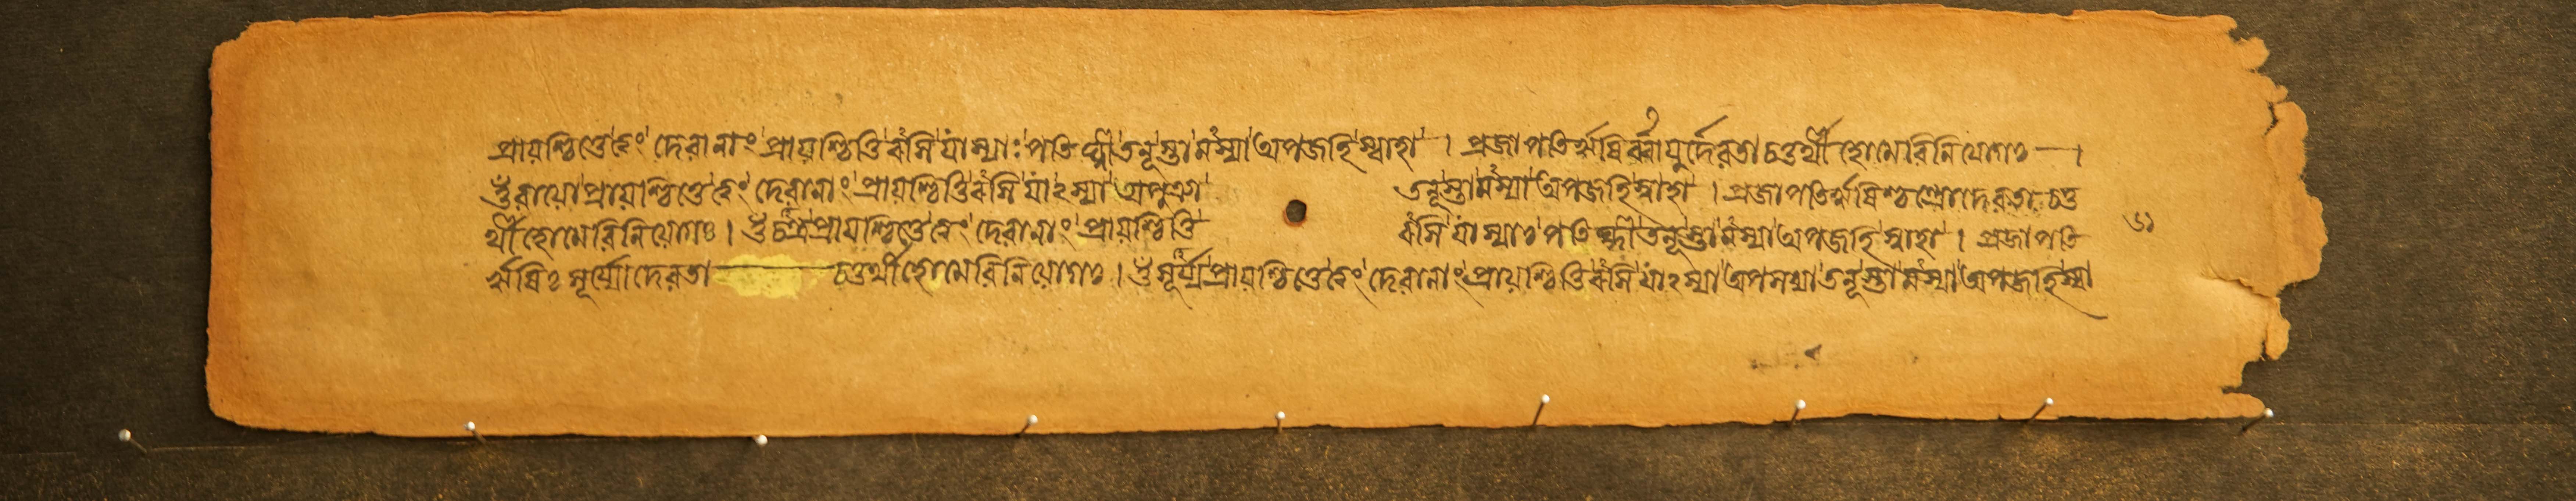 প্রায়শ্চিত্তে ত্বং দেৱানাং প্রায়শ্চিত্তিৰসি যাস্যাঃ পতিঘ্নী তনূস্তামস্যা অপজহি স্বাহা । প্রজাপতিৰ্ঋষিৰ্ব্বায়ুৰ্দেৱতা চতুর্থীহোমেৱিনিয়োগঃ — ।
ওঁ ৱায়ো প্রায়শ্চিত্তে ত্বং দেৱানাং প্রায়শ্চিত্তিৰসি যাঽস্যা অপুত্রা তনূস্তামস্যা অপজহি স্বাহা । প্রজাপতিৰ্ঋষিশ্চন্দ্রোদেৱতা চতু
র্থীহোমেৱিনিয়োগঃ । ওঁ চন্দ্র প্রায়শ্চিত্তে ত্বং দেৱানাং প্রায়শ্চিত্তি ৰসি যাস্যাঃ পতিঘ্নী তনূস্তামস্যা অপজহি স্বাহা । প্রজাপতি
ৰ্ঋষিঃ সূর্য্যোদেৱতা — চতুর্থীহোমেৱিনিয়োগঃ । ওঁ সূর্য্য প্রায়শ্চিত্তে ত্বং দেৱানাং প্রায়শ্চিত্তিৰসি যাঽস্যা অপসব্যা তনূস্তামস্যা অপজহি স্বা